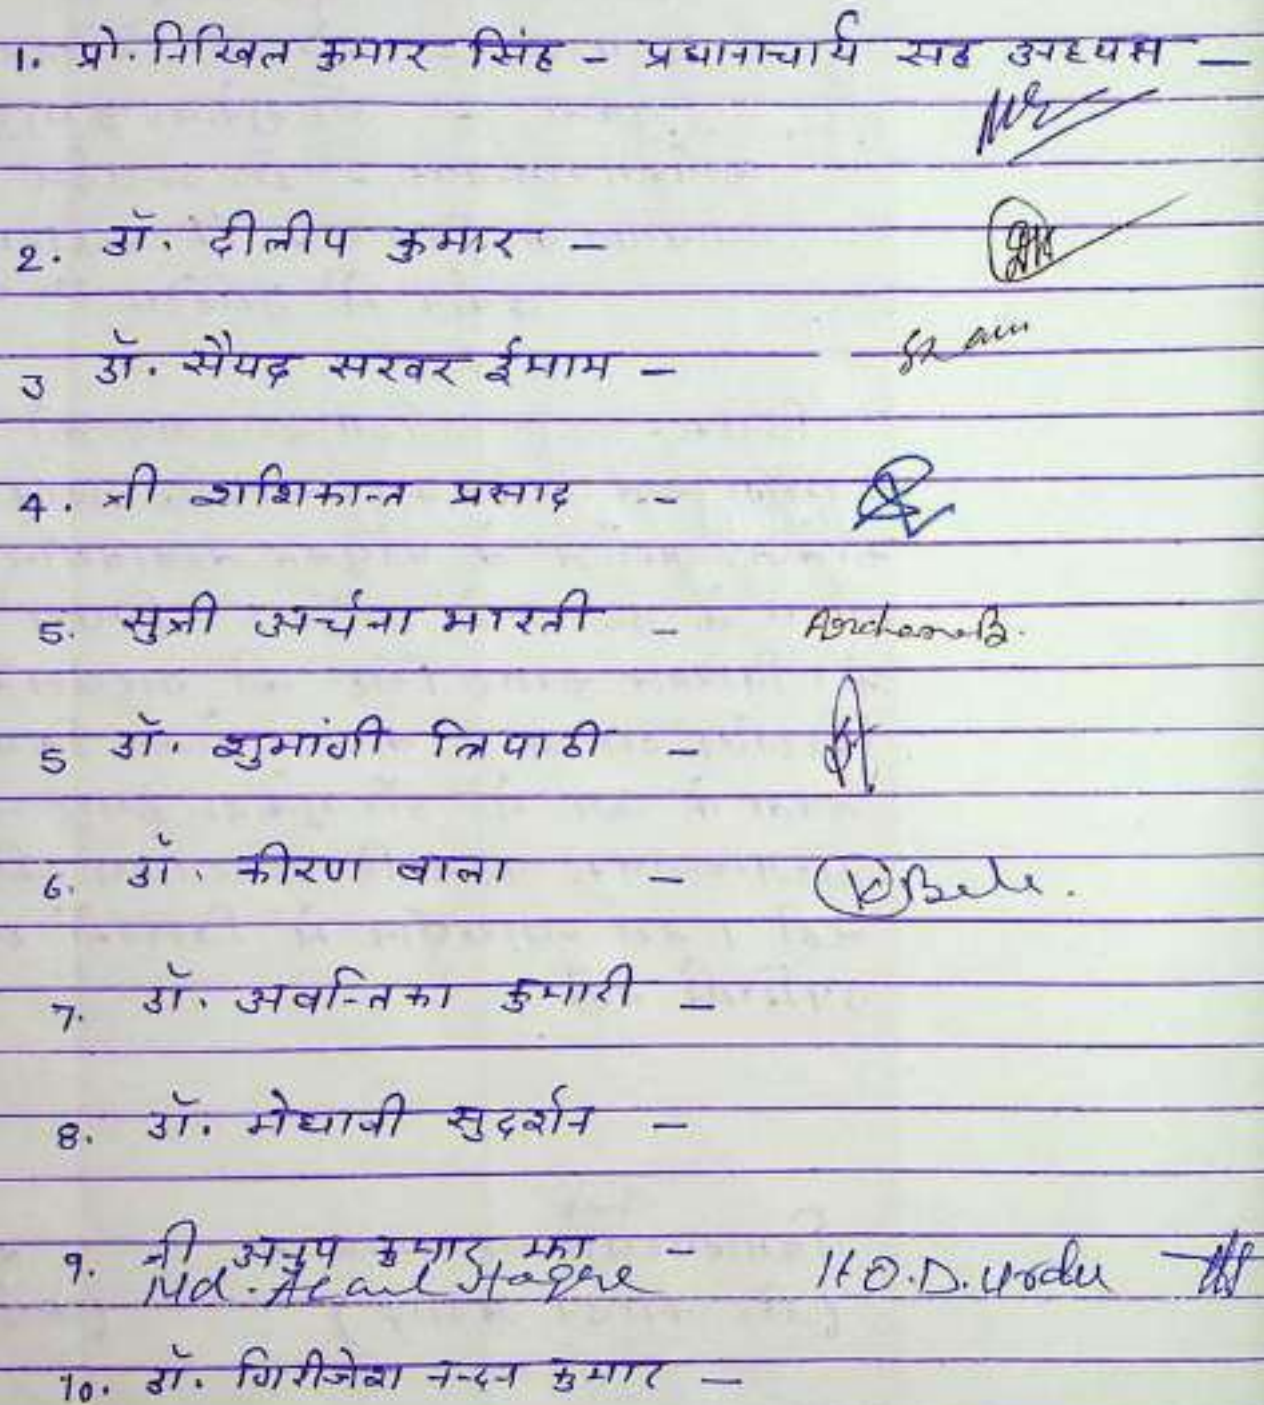 1. प्रो. निखिल कुमार सिंह - प्रधानाचार्य सह अध्यक्ष -
2. डॉ. दीलीप कुमार -
3 डॉ. सैयद सरवर ईमाम -
4. श्री शशिकान्त प्रसाद -
5. सुश्री अर्चना भारती - Archana B.
5 डॉ. शुभांगी त्रिपाठी -
6. डॉ. कीरण बाला - K Bala.
7. डॉ. अवन्तिका कुमारी -
8. डॉ. मेधावी सुदर्शन -
9. श्री अनुप कुमार झा -
Md. H.O.D. Urdu
10. डॉ. गिरीजेश नन्दन कुमार -